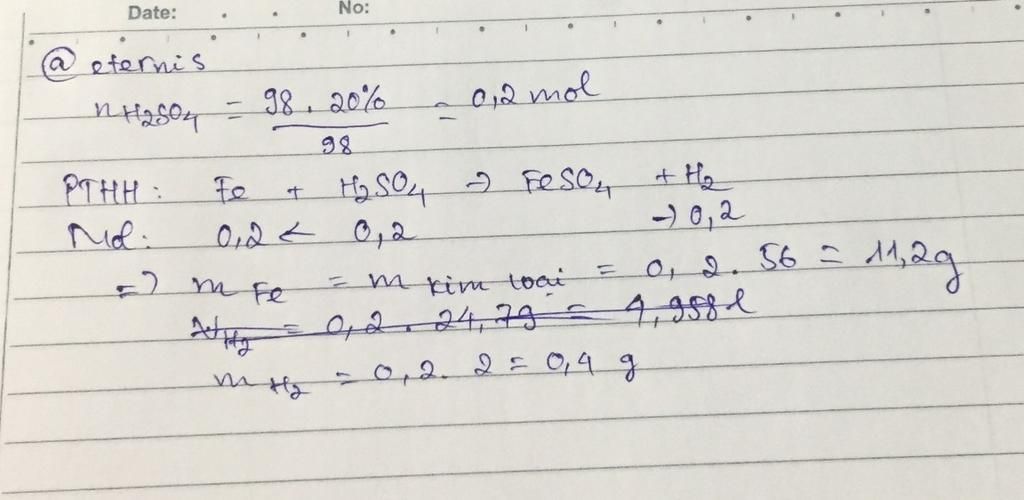 Date: No:
@ eternis
nH2SO4 = 98 . 20% / 98 = 0,2 mol
PTHH : Fe + H2SO4 → FeSO4 + H2
Mol: 0,2 ← 0,2 → 0,2
=> m Fe = m kim loại = 0,2 . 56 = 11,2g
VH2 = 0,2 . 24,79 = 4,958 l
m H2 = 0,2 . 2 = 0,4 g